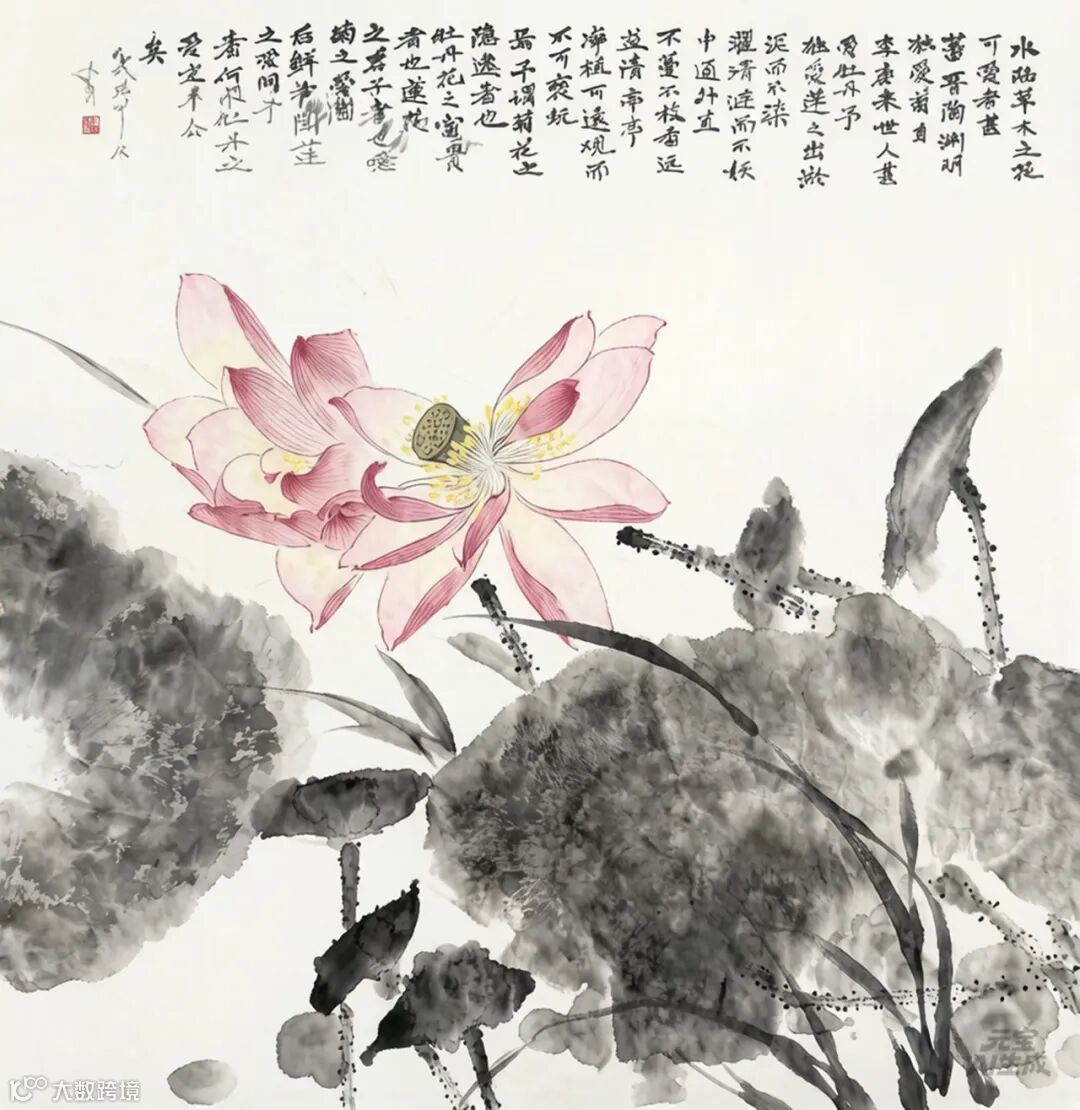 水陆草木之花
可愛者甚
蕃晋陶渊明
独愛菊自
李唐来世人甚
愛牡丹予
独愛莲之出淤
泥而不染
濯清涟而不妖
中通外直
不蔓不枝香远
益清亭亭
净植可遠观而
不可亵玩
焉予谓菊花之
隐逸者也
牡丹花之富貴
者也蓮花
之君子者也噫
菊之愛陶
后鲜有闻莲
之愛同予
者何 牡丹之
愛宜乎
矣
元宝
AI生成
大数跨境